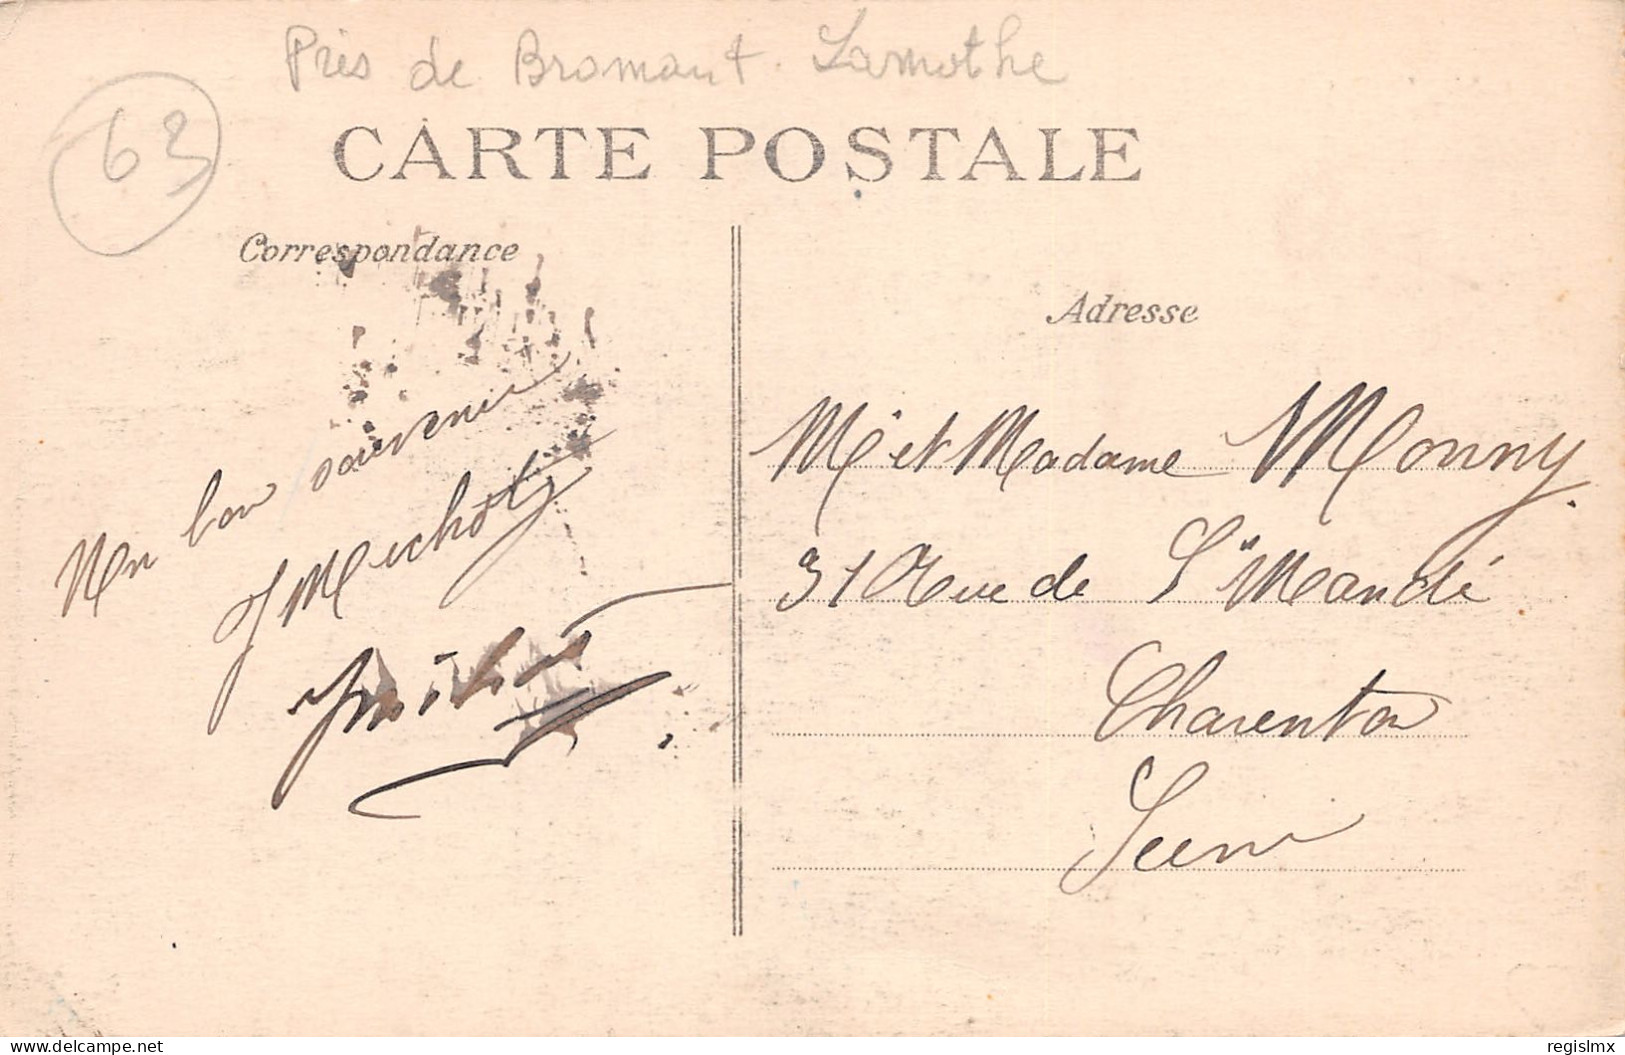 Près de Bromont. Lamothe
63
CARTE POSTALE
Correspondance
Adresse
Un bon souvenir
Mr et Madame Monny
31 Rue de St Mandé
Charenton
Seine
regislmx
delcampe.net